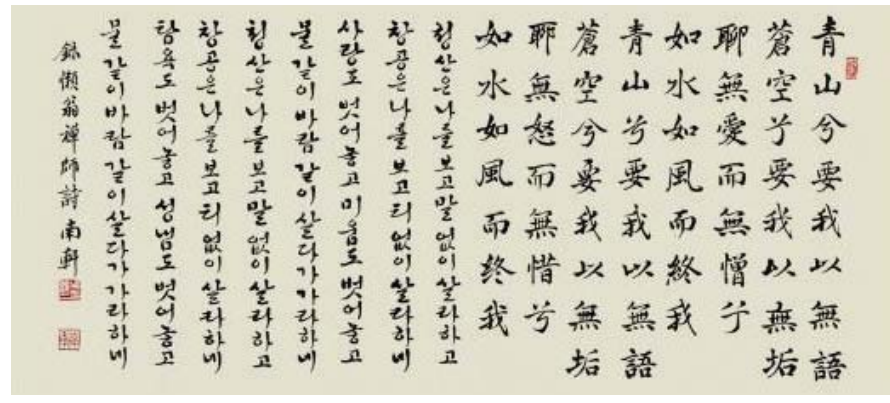 青山兮要我以無語
蒼空兮要我以無垢
聊無愛而無憎兮
如水如風而終我
青山兮要我以無語
蒼空兮要我以無垢
聊無怒而無惜兮
如水如風而終我
청산은 나를 보고 말 없이 살라하고
창공은 나를 보고 티 없이 살라하네
사랑도 벗어 놓고 미움도 벗어 놓고
물 같이 바람 같이 살다가 가라하네
청산은 나를 보고 말 없이 살라하고
창공은 나를 보고 티 없이 살라하네
탐욕도 벗어 놓고 성냄도 벗어 놓고
물 같이 바람 같이 살다가 가라하네
錄懶翁禪師詩 南軒